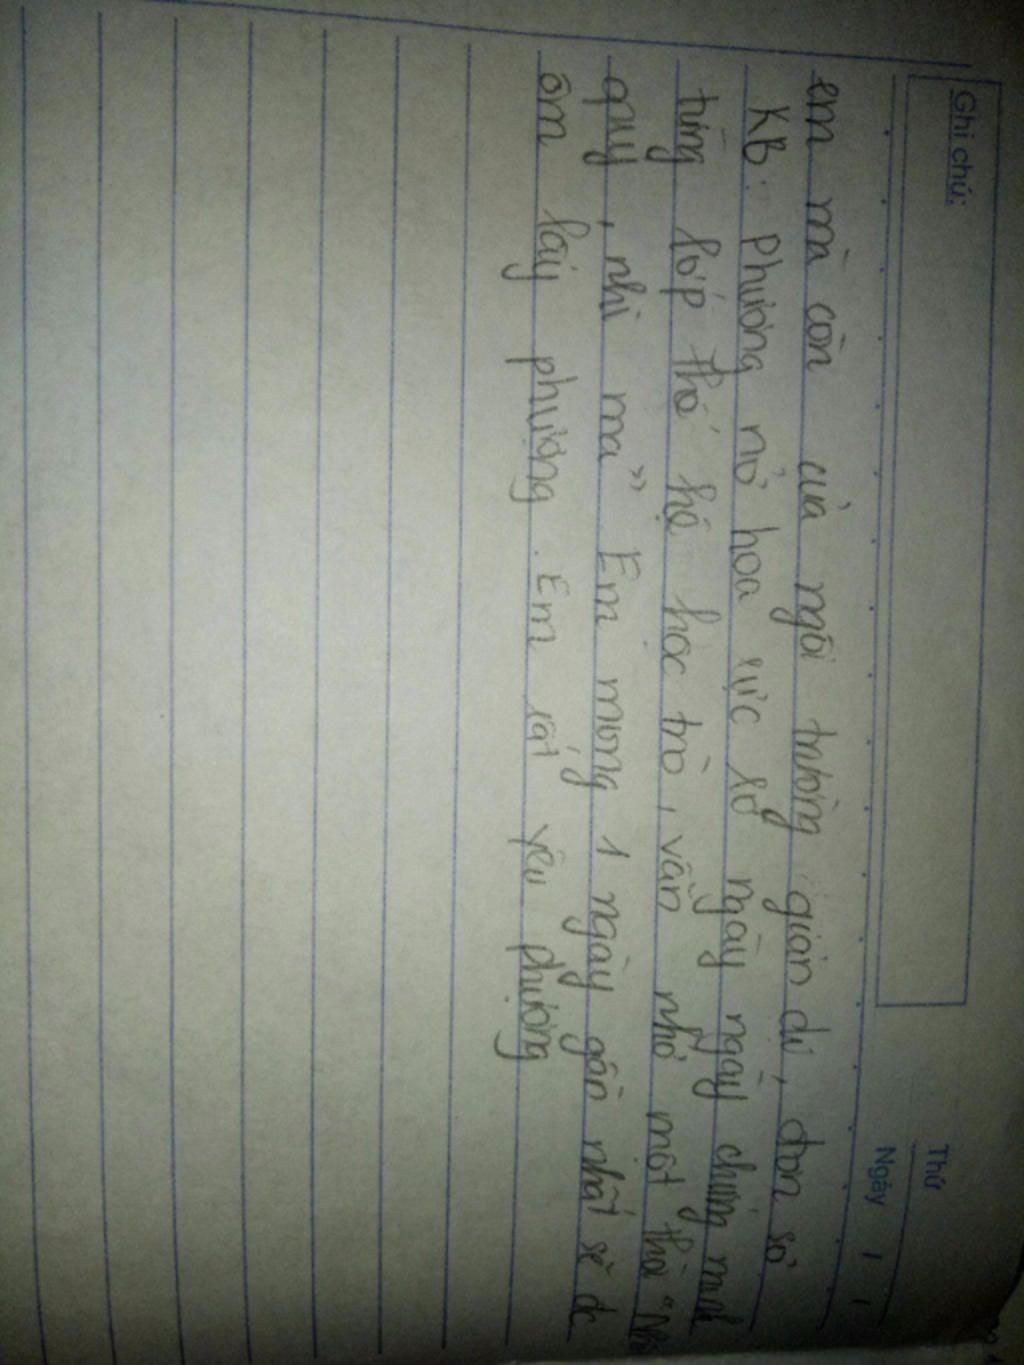 Ghi chú:
Thứ
Ngày / /
em mà còn của ngôi trường giản dị, đơn sơ
KB: Phượng nở hoa rực rỡ ngày ngày chứng minh
từng lớp thế hệ học trò, vẫn nhớ một thời "Nhất
quỷ, nhì ma" Em mong 1 ngày gần nhất sẽ đc
ôm lấy phượng. Em rất yêu phượng